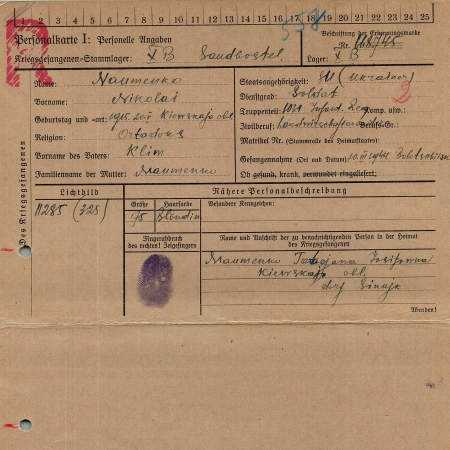 1 2 3 4 5 6 7 8 9 10 11 12 13 14 15 16 17 18 19 20 21 22 23 24 25
R
558
Personalkarte I: Personelle Angaben
Beschriftung der Erkennungsmarke
Nr. 108745
Kriegsgefangenen-Stammlager: X B Sandbostel
Lager: X B
Des Kriegsgefangenen
Name: Naumenko
Vorname: Nikolai
Geburtstag und -ort: Kiewskaja obl.
Religion: Ortodoks
Vorname des Vaters: Klim
Familienname der Mutter: Naumenko
Staatsangehörigkeit: SU (Ukrainer)
Dienstgrad: Soldat
2
Truppenteil: 1011 Infant. Reg Komp. usw.:
Zivilberuf: Berufs-Gr.:
Matrikel Nr. (Stammrolle des Heimatstaates):
Gefangennahme (Ort und Datum):
Ob gesund, krank, verwundet eingeliefert:
Lichtbild
Nähere Personalbeschreibung
11285 (325)
Größe Haarfarbe Besondere Kennzeichen:
Blondin
Fingerabdruck
des rechten! Zeigefingers
Name und Anschrift der zu benachrichtigenden Person in der Heimat
des Kriegsgefangenen
Naumenko
Kiewskaja obl.
Wenden!